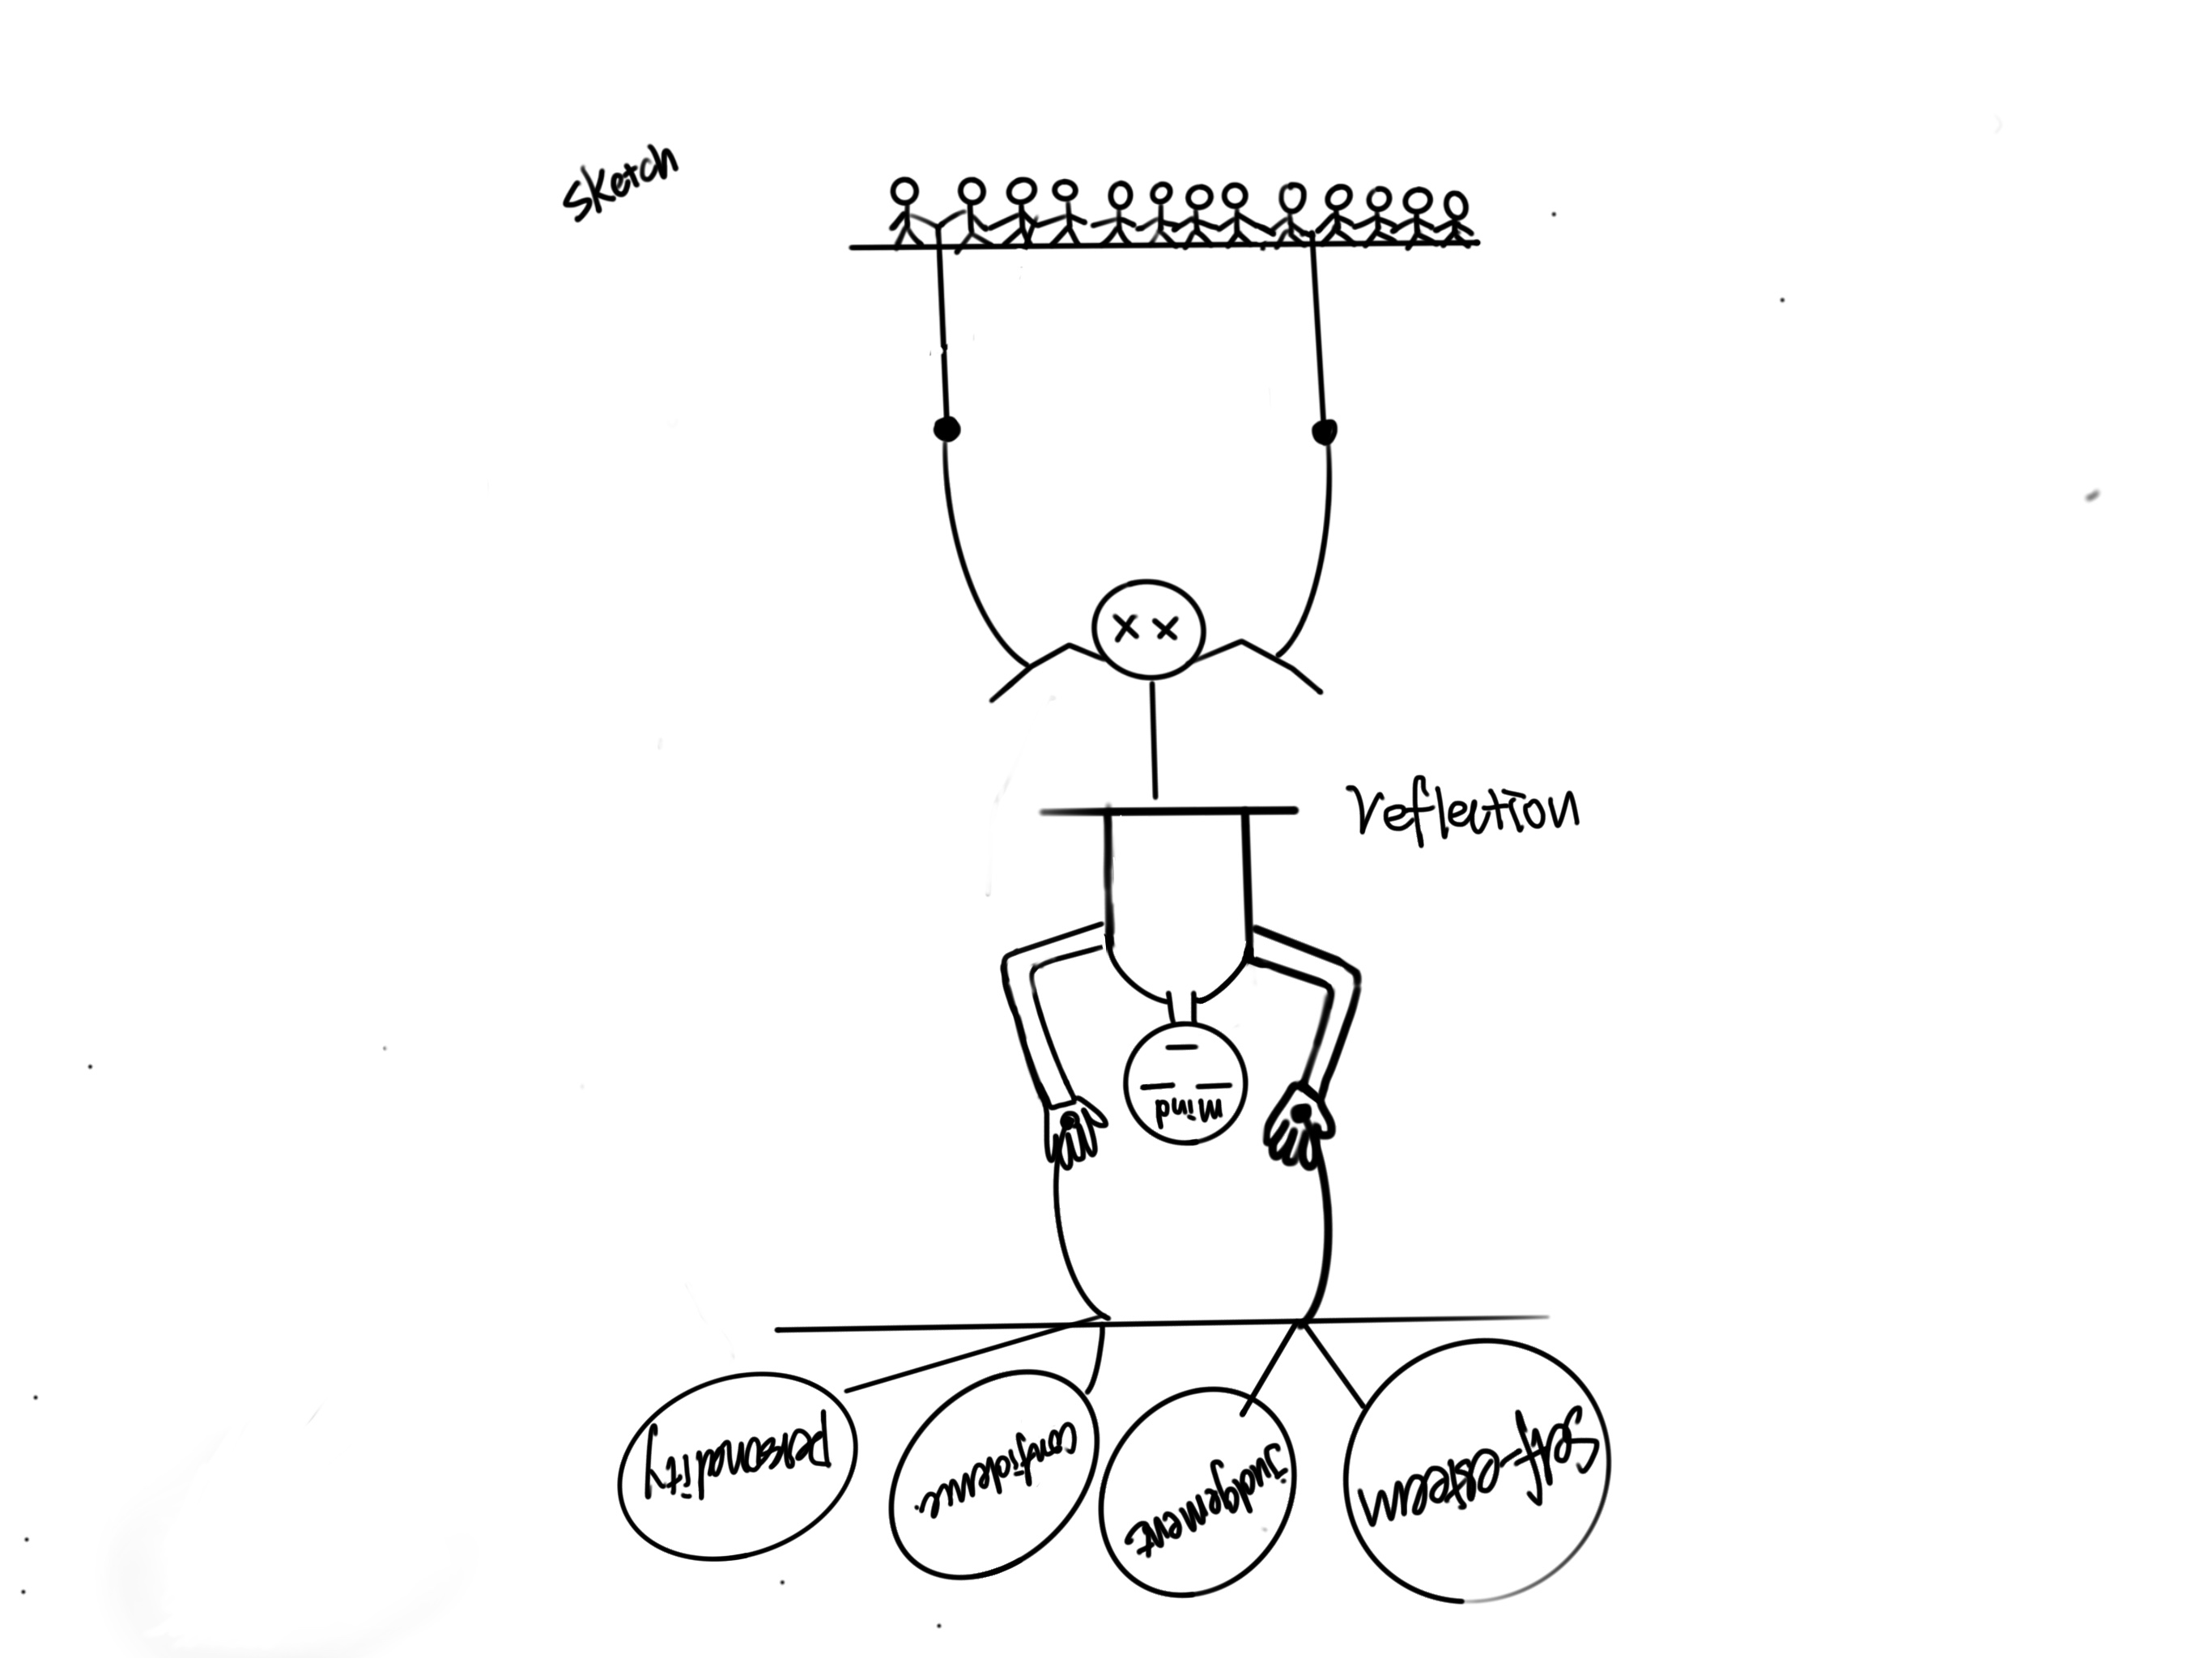 Sketch
reflection
mind
personality
confidence
Judgement
Self-esteem